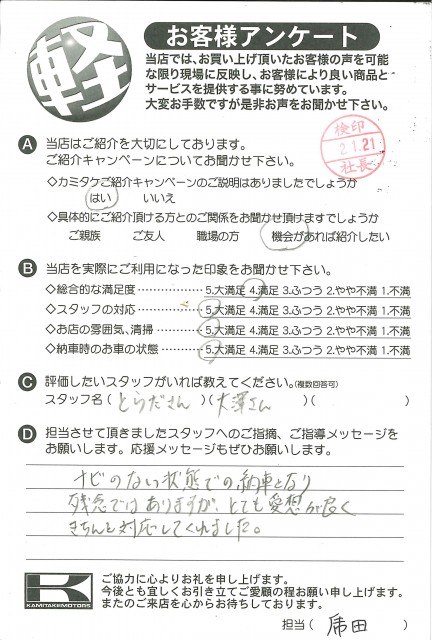 軽
お客様アンケート
当店では、お買い上げ頂いたお客様の声を可能
な限り現場に反映し、お客様により良い商品と
サービスを提供する事に努めています。
大変お手数ですが是非お声をお聞かせ下さい。
検印
21.21
社長
A 当店はご紹介を大切にしております。
ご紹介キャンペーンについてお聞かせ下さい。
◇カミタケご紹介キャンペーンのご説明はありましたでしょうか
はい いいえ
◇具体的にご紹介頂ける方とのご関係をお聞かせ頂けますでしょうか
ご親族 ご友人 職場の方 機会があれば紹介したい
B 当店を実際にご利用になった印象をお聞かせ下さい。
◇総合的な満足度 5.大満足 4.満足 3.ふつう 2.やや不満 1.不満
◇スタッフの対応 5.大満足 4.満足 3.ふつう 2.やや不満 1.不満
◇お店の雰囲気、清掃 5.大満足 4.満足 3.ふつう 2.やや不満 1.不満
◇納車時のお車の状態 5.大満足 4.満足 3.ふつう 2.やや不満 1.不満
C 評価したいスタッフがいれば教えてください。(複数回答可)
スタッフ名(とらださん)(大澤さん)( )
D 担当させて頂きましたスタッフへのご指摘、ご指導メッセージを
お願いします。応援メッセージもぜひお願いします。
ナビのない状態での納車となり
残念ではありますが、とても愛想が良く
きちんと対応してくれました。
K
KAMITAKEMOTORS
ご協力に心よりお礼を申し上げます。
今後とも宜しくお引き立てご愛顧の程お願い申し上げます。
またのご来店を心からお待ちしております。
担当( 田 )